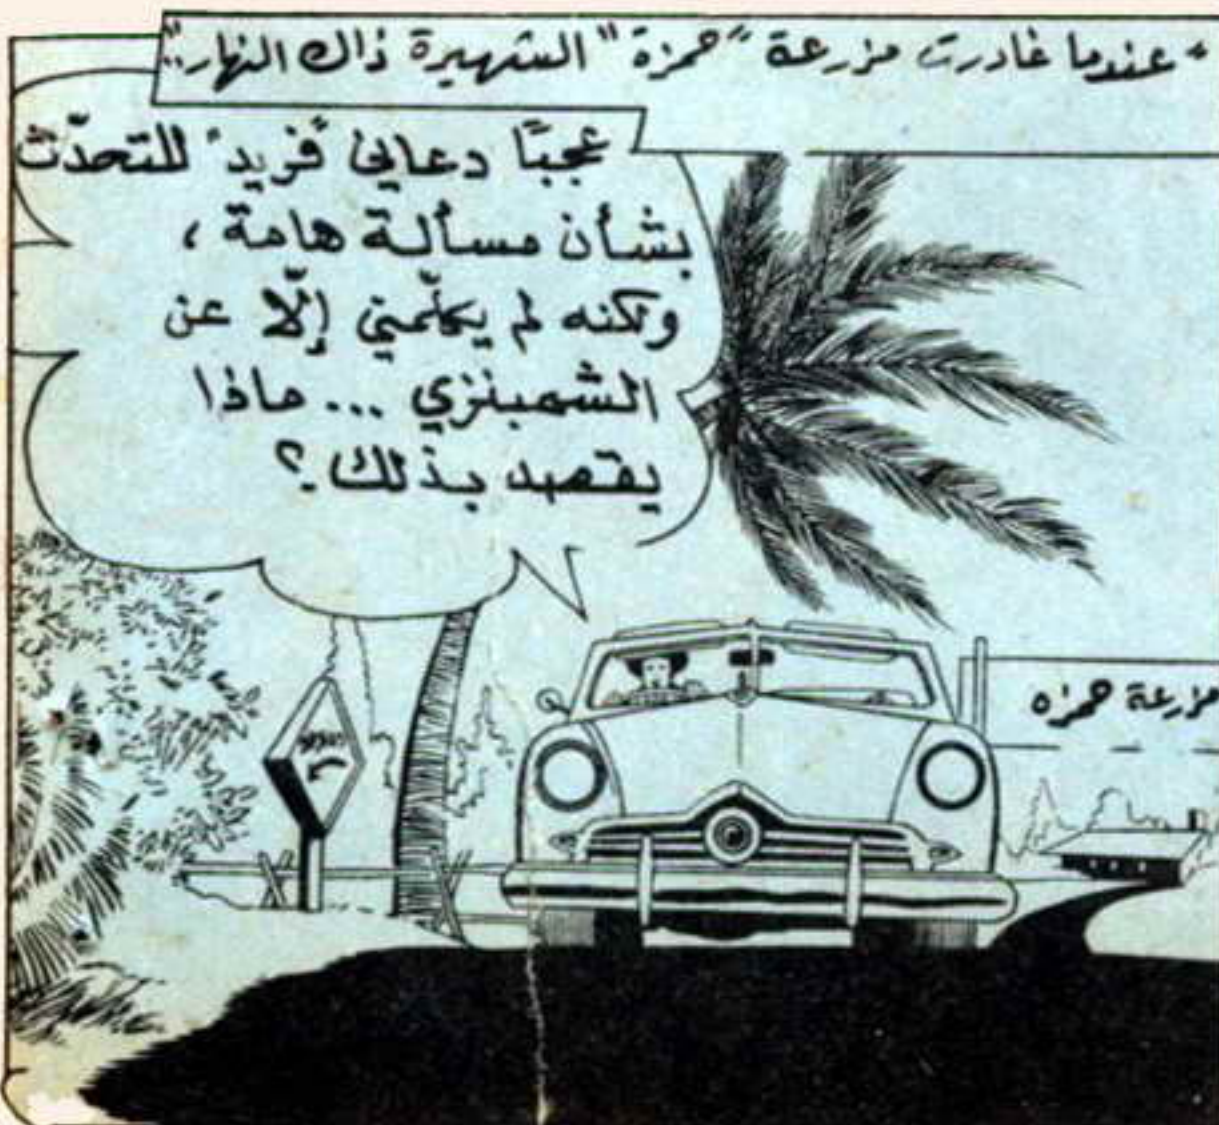 "عندما غادرت مزرعة "حمزة" الشهيرة ذاك النهار..."
عجبًا دعاني "فريد" للتحدّث
بشأن مسألة هامة ،
ولكنه لم يكلّمني إلّا عن
الشمبنزي ... ماذا
يقصد بذلك ؟
مزرعة حمزه